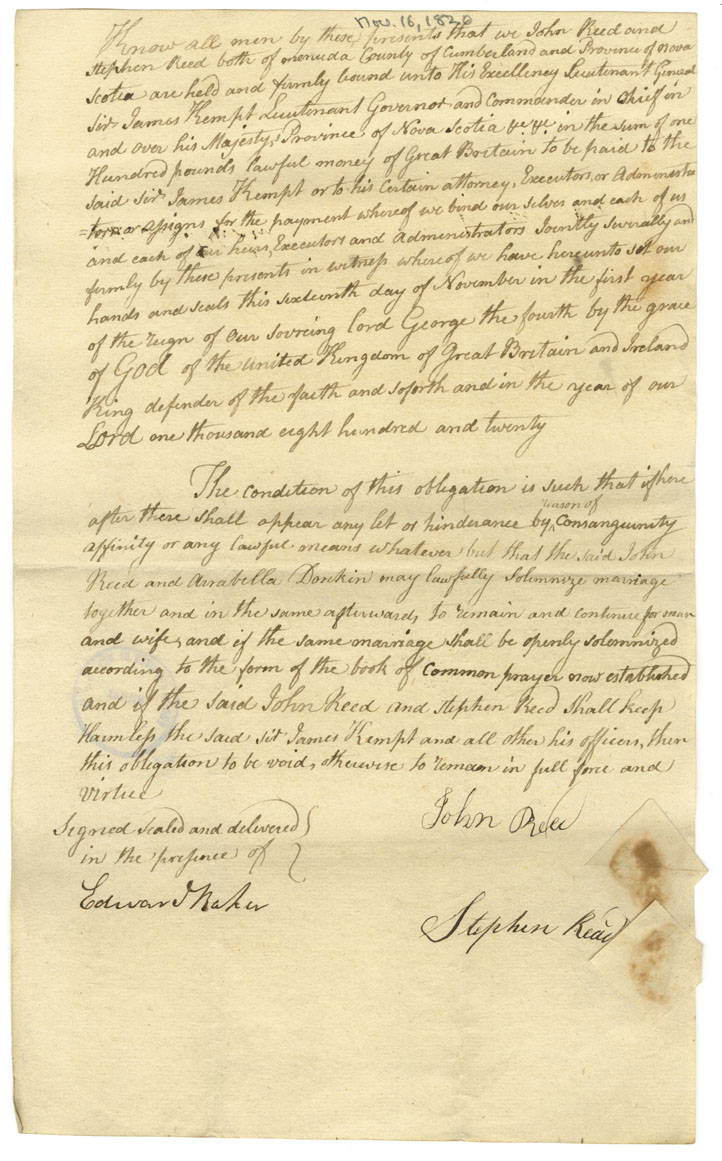 Nov. 16, 1820
Know all men by these presents that we John Reed and
Stephen Reed both of menuda County of Cumberland and Province of Nova
Scotia are held and firmly bound unto His Excellency Lieutenant General
Sir James Kempt Lieutenant Governor and Commander in Chief in
and over his Majesty,s Province, of Nova Scotia &c &c in the sum of one
Hundred pounds lawful money of Great Britain to be paid to the
said Sir James Kempt or to his Certain attorney, Executors, or Administra
=tors or assigns for the payment whereof we bind our selves and each of us
and each of our heirs, Executors and Administrators Jointly Severally and
firmly by these presents in witness where of we have hereunto set our
hands and seals this sixteenth day of November in the first year
of the reign of Our sovreing lord George the fourth by the grace
of God of the united Kingdom of Great Britain and Ireland
King defender of the faith and soforth and in the year of our
Lord one thousand eight hundred and twenty
The condition of this obligation is such that if here
after there shall appear any let or hinderance by reason of Consanguinity
affinity or any lawful means whatever but that the said John
Reed and Arrabella Donkin may lawfully solemnize marriage
together and in the same afterwards to remain and continue for man
and wife, and if the same marriage shall be openly solemnized
according to the form of the book of Common prayer now established
and if the said John Reed and Stephen Reed shall keep
Harmless the said Sir James Kempt and all other his officers, then
this obligation to be void, otherwise to remain in full force and
virtue
Signed sealed and delivered
in the presence of
John Reed
Edward Baker
Stephen Reed